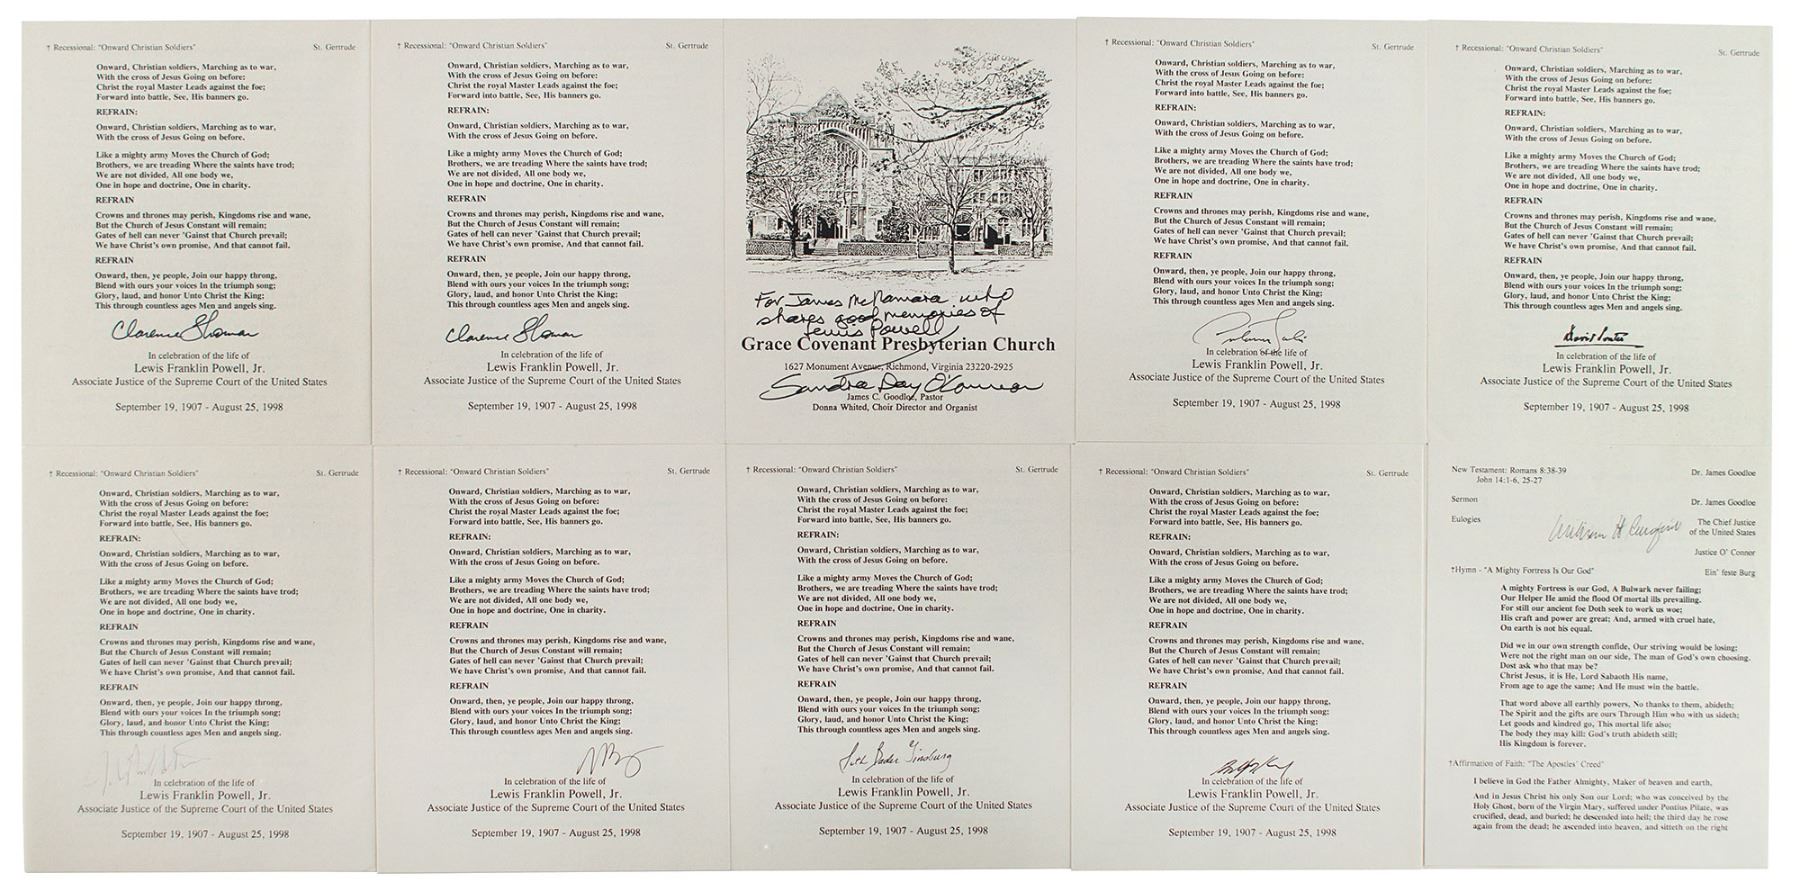 † Recessional: "Onward Christian Soldiers" St. Gertrude
Onward, Christian soldiers, Marching as to war,
With the cross of Jesus Going on before:
Christ the royal Master Leads against the foe;
Forward into battle, See, His banners go.
REFRAIN:
Onward, Christian soldiers, Marching as to war,
With the cross of Jesus Going on before.
Like a mighty army Moves the Church of God;
Brothers, we are treading Where the saints have trod;
We are not divided, All one body we,
One in hope and doctrine, One in charity.
REFRAIN
Crowns and thrones may perish, Kingdoms rise and wane,
But the Church of Jesus Constant will remain;
Gates of hell can never 'Gainst that Church prevail;
We have Christ's own promise, And that cannot fail.
REFRAIN
Onward, then, ye people, Join our happy throng,
Blend with ours your voices In the triumph song;
Glory, laud, and honor Unto Christ the King;
This through countless ages Men and angels sing.
Clarence Thomas
In celebration of the life of
Lewis Franklin Powell, Jr.
Associate Justice of the Supreme Court of the United States
September 19, 1907 - August 25, 1998
† Recessional: "Onward Christian Soldiers" St. Gertrude
Onward, Christian soldiers, Marching as to war,
With the cross of Jesus Going on before:
Christ the royal Master Leads against the foe;
Forward into battle, See, His banners go.
REFRAIN:
Onward, Christian soldiers, Marching as to war,
With the cross of Jesus Going on before.
Like a mighty army Moves the Church of God;
Brothers, we are treading Where the saints have trod;
We are not divided, All one body we,
One in hope and doctrine, One in charity.
REFRAIN
Crowns and thrones may perish, Kingdoms rise and wane,
But the Church of Jesus Constant will remain;
Gates of hell can never 'Gainst that Church prevail;
We have Christ's own promise, And that cannot fail.
REFRAIN
Onward, then, ye people, Join our happy throng,
Blend with ours your voices In the triumph song;
Glory, laud, and honor Unto Christ the King;
This through countless ages Men and angels sing.
Clarence Thomas
In celebration of the life of
Lewis Franklin Powell, Jr.
Associate Justice of the Supreme Court of the United States
September 19, 1907 - August 25, 1998
For James McNamara who
shares good memories of
Lewis Powell
Grace Covenant Presbyterian Church
1627 Monument Avenue, Richmond, Virginia 23220-2925
Sandra Day O'Connor
James C. Goodloe, Pastor
Donna Whited, Choir Director and Organist
† Recessional: "Onward Christian Soldiers" St. Gertrude
Onward, Christian soldiers, Marching as to war,
With the cross of Jesus Going on before:
Christ the royal Master Leads against the foe;
Forward into battle, See, His banners go.
REFRAIN:
Onward, Christian soldiers, Marching as to war,
With the cross of Jesus Going on before.
Like a mighty army Moves the Church of God;
Brothers, we are treading Where the saints have trod;
We are not divided, All one body we,
One in hope and doctrine, One in charity.
REFRAIN
Crowns and thrones may perish, Kingdoms rise and wane,
But the Church of Jesus Constant will remain;
Gates of hell can never 'Gainst that Church prevail;
We have Christ's own promise, And that cannot fail.
REFRAIN
Onward, then, ye people, Join our happy throng,
Blend with ours your voices In the triumph song;
Glory, laud, and honor Unto Christ the King;
This through countless ages Men and angels sing.
In celebration of the life of
Lewis Franklin Powell, Jr.
Associate Justice of the Supreme Court of the United States
September 19, 1907 - August 25, 1998
† Recessional: "Onward Christian Soldiers" St. Gertrude
Onward, Christian soldiers, Marching as to war,
With the cross of Jesus Going on before:
Christ the royal Master Leads against the foe;
Forward into battle, See, His banners go.
REFRAIN:
Onward, Christian soldiers, Marching as to war,
With the cross of Jesus Going on before.
Like a mighty army Moves the Church of God;
Brothers, we are treading Where the saints have trod;
We are not divided, All one body we,
One in hope and doctrine, One in charity.
REFRAIN
Crowns and thrones may perish, Kingdoms rise and wane,
But the Church of Jesus Constant will remain;
Gates of hell can never 'Gainst that Church prevail;
We have Christ's own promise, And that cannot fail.
REFRAIN
Onward, then, ye people, Join our happy throng,
Blend with ours your voices In the triumph song;
Glory, laud, and honor Unto Christ the King;
This through countless ages Men and angels sing.
David Souter
In celebration of the life of
Lewis Franklin Powell, Jr.
Associate Justice of the Supreme Court of the United States
September 19, 1907 - August 25, 1998
† Recessional: "Onward Christian Soldiers" St. Gertrude
Onward, Christian soldiers, Marching as to war,
With the cross of Jesus Going on before:
Christ the royal Master Leads against the foe;
Forward into battle, See, His banners go.
REFRAIN:
Onward, Christian soldiers, Marching as to war,
With the cross of Jesus Going on before.
Like a mighty army Moves the Church of God;
Brothers, we are treading Where the saints have trod;
We are not divided, All one body we,
One in hope and doctrine, One in charity.
REFRAIN
Crowns and thrones may perish, Kingdoms rise and wane,
But the Church of Jesus Constant will remain;
Gates of hell can never 'Gainst that Church prevail;
We have Christ's own promise, And that cannot fail.
REFRAIN
Onward, then, ye people, Join our happy throng,
Blend with ours your voices In the triumph song;
Glory, laud, and honor Unto Christ the King;
This through countless ages Men and angels sing.
In celebration of the life of
Lewis Franklin Powell, Jr.
Associate Justice of the Supreme Court of the United States
September 19, 1907 - August 25, 1998
† Recessional: "Onward Christian Soldiers" St. Gertrude
Onward, Christian soldiers, Marching as to war,
With the cross of Jesus Going on before:
Christ the royal Master Leads against the foe;
Forward into battle, See, His banners go.
REFRAIN:
Onward, Christian soldiers, Marching as to war,
With the cross of Jesus Going on before.
Like a mighty army Moves the Church of God;
Brothers, we are treading Where the saints have trod;
We are not divided, All one body we,
One in hope and doctrine, One in charity.
REFRAIN
Crowns and thrones may perish, Kingdoms rise and wane,
But the Church of Jesus Constant will remain;
Gates of hell can never 'Gainst that Church prevail;
We have Christ's own promise, And that cannot fail.
REFRAIN
Onward, then, ye people, Join our happy throng,
Blend with ours your voices In the triumph song;
Glory, laud, and honor Unto Christ the King;
This through countless ages Men and angels sing.
In celebration of the life of
Lewis Franklin Powell, Jr.
Associate Justice of the Supreme Court of the United States
September 19, 1907 - August 25, 1998
† Recessional: "Onward Christian Soldiers" St. Gertrude
Onward, Christian soldiers, Marching as to war,
With the cross of Jesus Going on before:
Christ the royal Master Leads against the foe;
Forward into battle, See, His banners go.
REFRAIN:
Onward, Christian soldiers, Marching as to war,
With the cross of Jesus Going on before.
Like a mighty army Moves the Church of God;
Brothers, we are treading Where the saints have trod;
We are not divided, All one body we,
One in hope and doctrine, One in charity.
REFRAIN
Crowns and thrones may perish, Kingdoms rise and wane,
But the Church of Jesus Constant will remain;
Gates of hell can never 'Gainst that Church prevail;
We have Christ's own promise, And that cannot fail.
REFRAIN
Onward, then, ye people, Join our happy throng,
Blend with ours your voices In the triumph song;
Glory, laud, and honor Unto Christ the King;
This through countless ages Men and angels sing.
Ruth Bader Ginsburg
In celebration of the life of
Lewis Franklin Powell, Jr.
Associate Justice of the Supreme Court of the United States
September 19, 1907 - August 25, 1998
† Recessional: "Onward Christian Soldiers" St. Gertrude
Onward, Christian soldiers, Marching as to war,
With the cross of Jesus Going on before:
Christ the royal Master Leads against the foe;
Forward into battle, See, His banners go.
REFRAIN:
Onward, Christian soldiers, Marching as to war,
With the cross of Jesus Going on before.
Like a mighty army Moves the Church of God;
Brothers, we are treading Where the saints have trod;
We are not divided, All one body we,
One in hope and doctrine, One in charity.
REFRAIN
Crowns and thrones may perish, Kingdoms rise and wane,
But the Church of Jesus Constant will remain;
Gates of hell can never 'Gainst that Church prevail;
We have Christ's own promise, And that cannot fail.
REFRAIN
Onward, then, ye people, Join our happy throng,
Blend with ours your voices In the triumph song;
Glory, laud, and honor Unto Christ the King;
This through countless ages Men and angels sing.
In celebration of the life of
Lewis Franklin Powell, Jr.
Associate Justice of the Supreme Court of the United States
September 19, 1907 - August 25, 1998
New Testament: Romans 8:38-39 Dr. James Goodloe
John 14:1-6, 25-27
Sermon Dr. James Goodloe
Eulogies The Chief Justice
William H Rehnquist of the United States
Justice O' Connor
†Hymn - "A Mighty Fortress Is Our God" Ein' feste Burg
A mighty Fortress is our God, A Bulwark never failing;
Our Helper He amid the flood Of mortal ills prevailing.
For still our ancient foe Doth seek to work us woe;
His craft and power are great; And, armed with cruel hate,
On earth is not his equal.
Did we in our own strength confide, Our striving would be losing;
Were not the right man on our side, The man of God's own choosing.
Dost ask who that may be?
Christ Jesus, it is He, Lord Sabaoth His name,
From age to age the same; And He must win the battle.
That word above all earthly powers, No thanks to them, abideth;
The Spirit and the gifts are ours Through Him who with us sideth;
Let goods and kindred go, This mortal life also;
The body they may kill: God's truth abideth still;
His Kingdom is forever.
†Affirmation of Faith: "The Apostles' Creed"
I believe in God the Father Almighty, Maker of heaven and earth,
And in Jesus Christ his only Son our Lord; who was conceived by the
Holy Ghost, born of the Virgin Mary, suffered under Pontius Pilate, was
crucified, dead, and buried; he descended into hell; the third day he rose
again from the dead; he ascended into heaven, and sitteth on the right